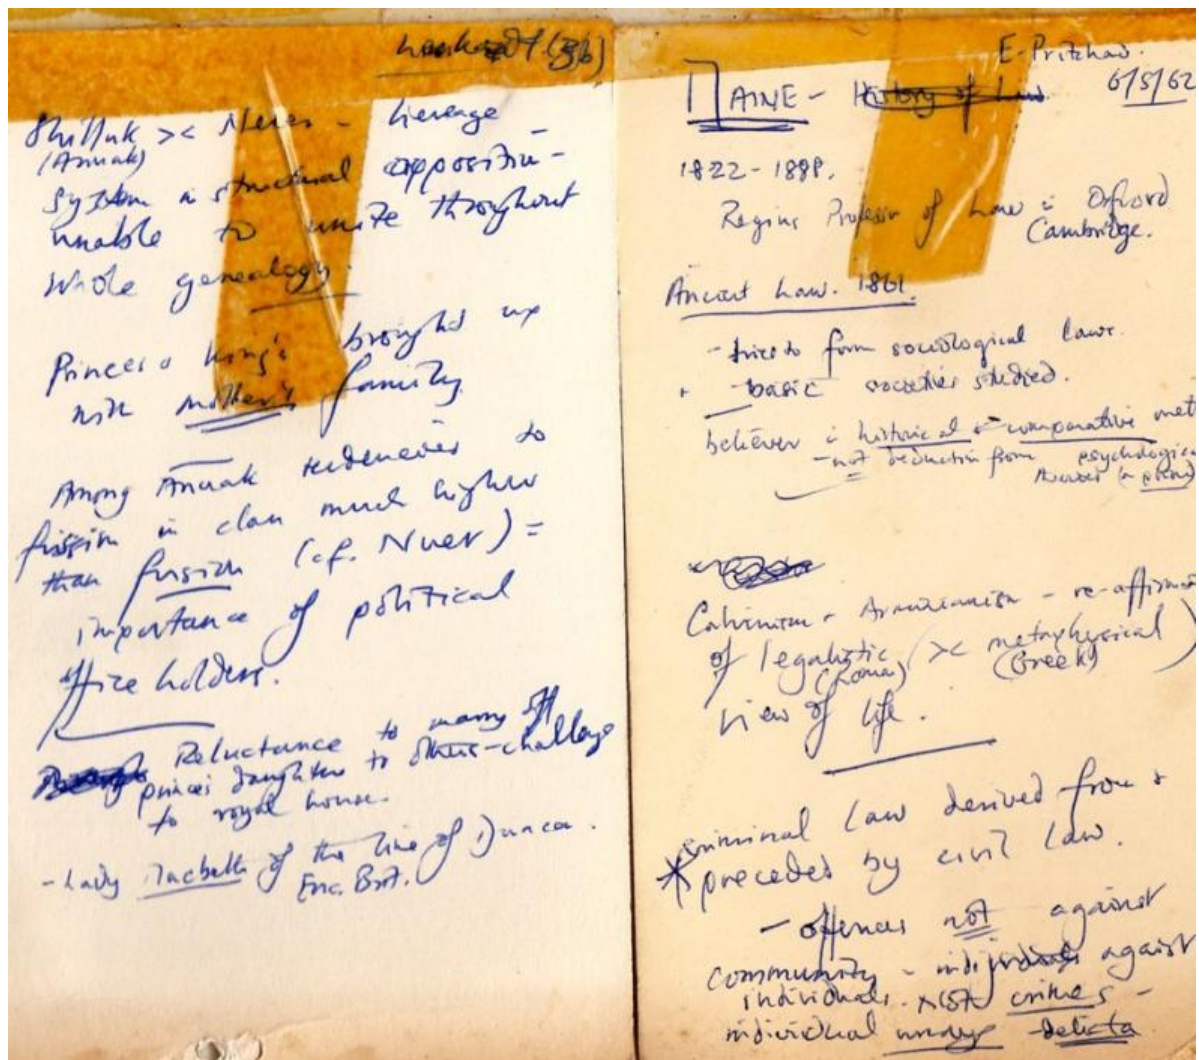 Lienhardt (3b)
Shilluk >< Nuer - lineage
(Anuak)
system a structural opposition -
unable to unite throughout
whole genealogy.
Princes & King's brought up
with mother's family
Among Anuak tendencies to
fission in clan much higher
than fusion (cf. Nuer) =
importance of political
office holders.
Reluctance to marry off
princes daughters to others - challenge
to royal house.
- Lady Macbeth of the line of Duncan.
Enc. Brit.
E-Pritchard.
6/5/62
MAINE - History of Law
1822-1888.
Regius Professor of Law in Oxford
Cambridge.
Ancient Law. 1861.
- tries to form sociological laws.
- basic societies studied.
believer in historical & comparative meth
- not deduction from psychological
(a priori)
Calvinism & Arminianism - re-affirmation
of legalistic (>< metaphysical)
(Roman) (Greek)
view of life.
criminal law derived from &
* preceded by civil law.
- offences not against
community - individuals against
individuals. Not crimes -
individual wrongs - delicta